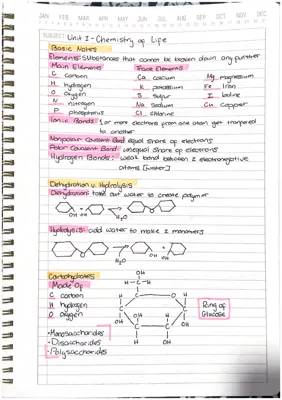 JAN FEB MAR APR MAY JUN JUL AUG SEP OCT NOV DEC
SUBJECT Unit 1 - Chemistry of Life
Basic Notes
Elements: substances that cannot be broken down any further
Main Elements Trace Elements
C carbon Ca calcium Mg magnesium
H hydrogen K potassium Fe Iron
O Oxygen S Sulfur I Iodine
N nitrogen Na Sodium Cu Copper
P phosphorus Cl chlorine
Ionic Bonds: 1 or more electrons from one atom get transfered
to another
Nonpolar Covalent Bond: equal share of electrons
Polar Covalent Bond: unequal share of electrons
Hydrogen Bonds: weak bond between 2 electronegative
atoms [water]
Dehydration v. Hydrolysis
Dehydration: take out water to create polymer
OH OH H₂O O
Hydrolysis: add water to make 2 monomers
O H₂O OH OH
Carbohydrates
Made Of
C carbon
H hydrogen
O oxygen
OH
H-C-H
O
H H
OH OH
H OH
Ring of
Glucose
• Monosaccharides
• Disaccharides
• Polysaccharides